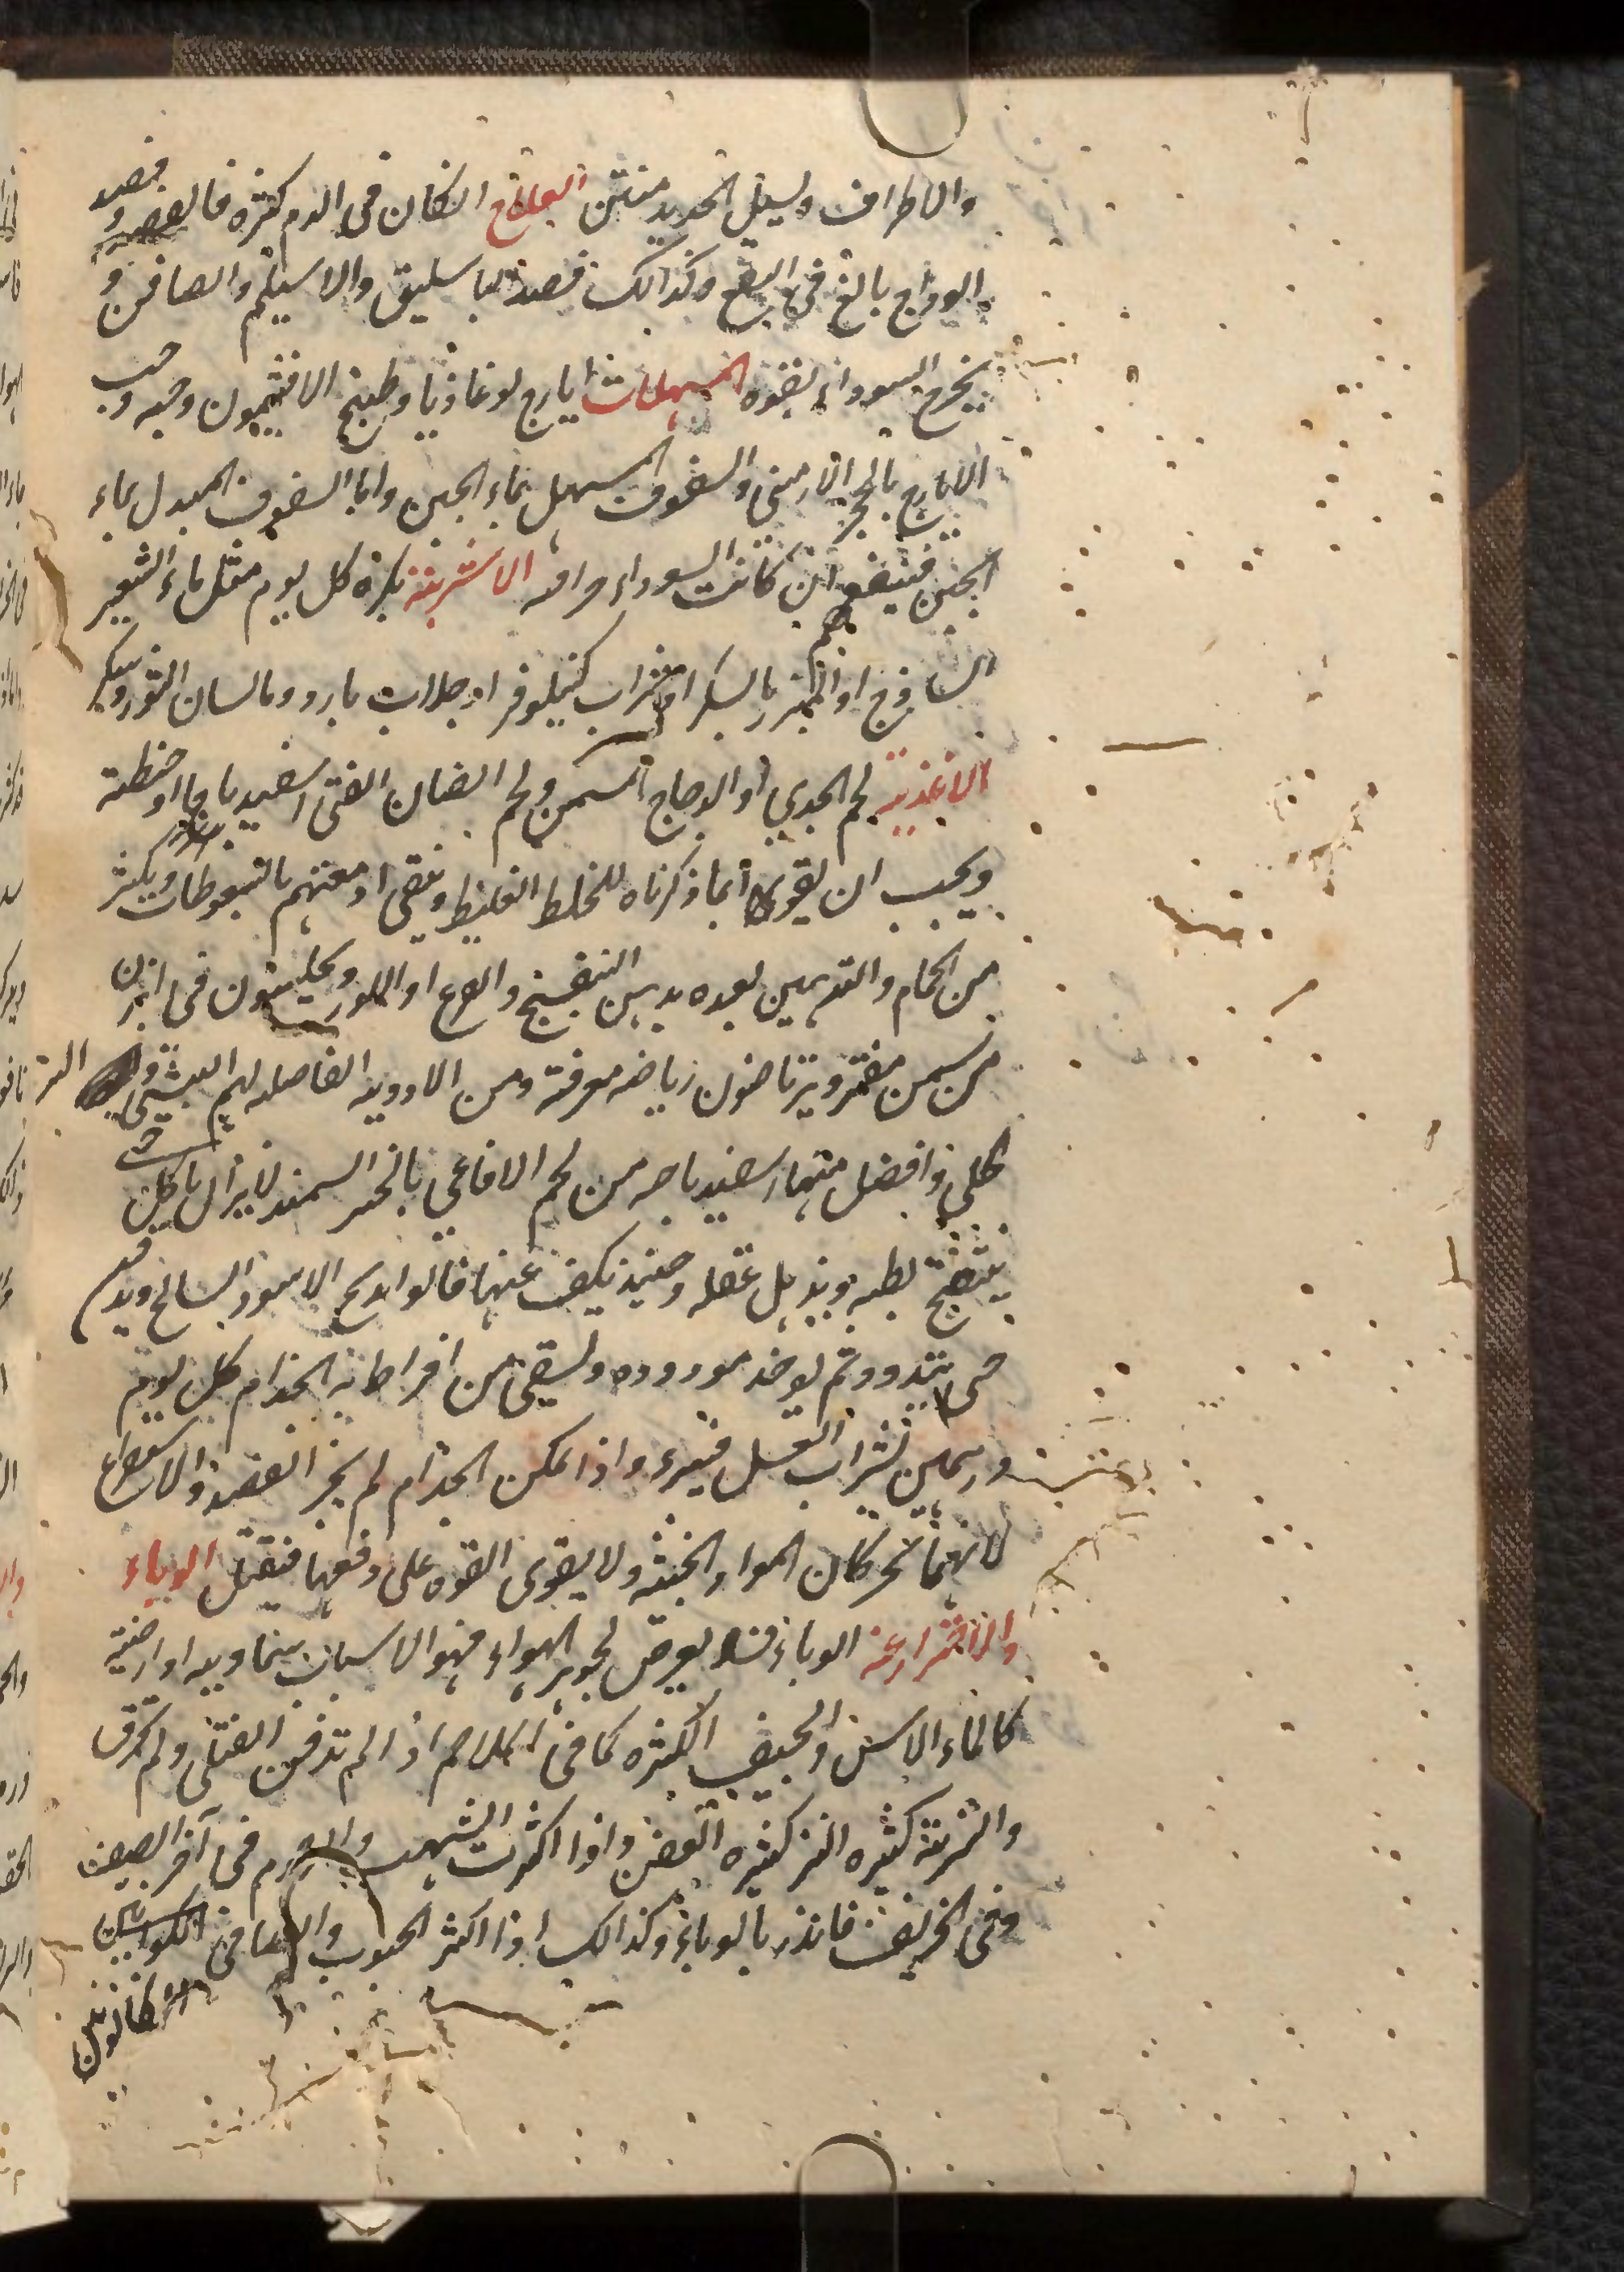 والاطراف ويسيل الحديد منتن العلاج ان كان فى الدم كثره فالفصد وفصد
الوداج بالغ فى النفع وكذالك فصد الباسليق والاسيلم والصافن و
يخرج السوداء بقوه المسهلات ايارج لوغاذيا وطبيخ الافتيمون وحبه وحب
الايارج بالحجر الارمنى والسفوف المسهل بماء الجبن واما السفوف المبدل بماء
الجبن فينفعهم ان كانت السوداء مراره الاشربة بكره كل يوم مغلى ماء الشعير
الساذج او المبزر بالسكر او شراب كنيلوفر او جلاب بارد وما لسان الثور وسكر
الاغذية لحم الجدي او الدجاج المسمن ولحم الضان الفتى اسفيدباجا او حنطة
ويجب ان يقوى بما ذكرناه للخلط الغليظ وينقى ادمغتهم بالسعوطات ويكثر
من الحمام والتدهين بعده بدهن البنفسج والقرع او اللوز ويجلسون فى ابزن
من سمن مفتر ويرتاضون رياضه معرقة ومن الادويه الفاضله لهم البيش و التر
كلى وافضل منها اسفيدباجه من لحم الافاعى بالخبز السميد لا يزال ياكل حتى
ينتفخ بطنه ويذهل عقله وحينئذ يكف عنها قالوا يذبح الاسود السالخ ويدفن
حتى يتدود ثم يوخذ مع دوده ويسقى من افرط به الجذام كل يوم
درهمين بشراب العسل فيبرء واذا تمكن الجذام لم يجز الفصد والاستفراغ
لانهما يحركان المواد الخبيثه ولا يقوى القوه على دفعها فيقتل الوباء
والاحتراز عنه الوباء فساد يعرض لجوهر الهواء فهو الاسباب سماويه او ارضية
كالماء الاسن والجيف الكثيره كما فى الملاحم اذا لم تدفن القتلى ولم تحرق
والتربة كثيره النز كثيره العفن واذا اكثرت الشهب والرجوم فى آخر الصيف
وفى الخريف فانذر بالوباء وكذالك اذا اكثر الجنوب والصبا فى الكوانين
الكانونين